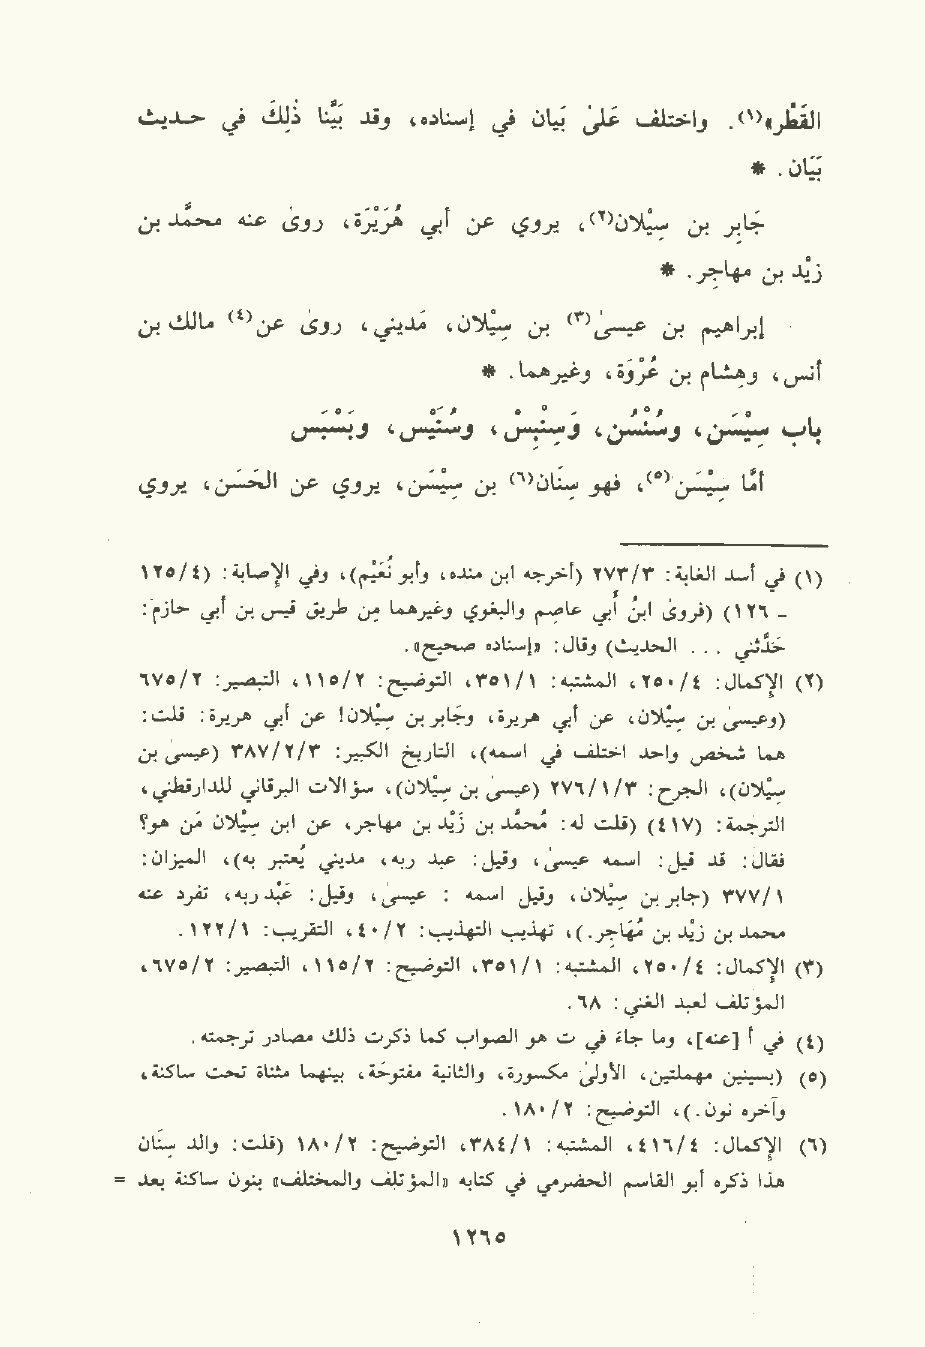 القَطْر»(١). واختلف عَلىٰ بَيان في إسناده، وقد بَيَّنا ذٰلِكَ في حديث
بَيَان. *
جَابِر بن سِيْلان(٢)، يروي عن أبي هُرَيْرَة، روىٰ عنه محمَّد بن
زيْد بن مهاجِر. *
إبراهيم بن عيسىٰ(٣) بن سِيْلان، مَديني، روىٰ عن(٤) مالك بن
أنس، وهِشام بن عُرْوَة، وغيرهما. *
باب سِيْسَن، وسُنْسُن، وَسِنْبِس، وسُنَيْس، وبَسْبَس
أمَّا سِيْسَن(٥)، فهو سِنَان(٦) بن سِيْسَن، يروي عن الحَسَن، يروي
(١) في أسد الغابة: ٢٧٣/٣ (أخرجه ابن منده، وأبو نُعَيْم)، وفي الإصابة: (١٢٥/٤
_ ١٢٦) (فروىٰ ابنُ أبي عاصم والبغوي وغيرهما من طريق قيس بن أبي حازم:
حَدَّثني ... الحديث) وقال: «إسناده صحيح».
(٢) الإكمال: ٢٥٠/٤، المشتبه: ٣٥١/١، التوضيح: ١١٥/٢، التبصير: ٦٧٥/٢
(وعيسىٰ بن سِيْلان، عن أبي هريرة، وجَابر بن سِيْلان! عن أبي هريرة: قلت:
هما شخص واحد اختلف في اسمه)، التاريخ الكبير: ٣٨٧/٢/٣ (عيسىٰ بن
سِيْلان)، الجرح: ٢٧٦/١/٣ (عيسىٰ بن سِيْلان)، سؤالات البرقاني للدارقطني،
الترجمة: (٤١٧) (قلت له: مُحمَّد بن زيْد بن مهاجر، عن ابن سِيْلان مَن هو؟
فقال: قد قيل: اسمه عيسىٰ، وقيل: عبد ربه، مديني يُعتبر به)، الميزان:
٣٧٧/١ (جابر بن سِيْلان، وقيل اسمه : عيسىٰ، وقيل: عَبْد ربه، تفرد عنه
محمد بن زيْد بن مُهَاجِر.)، تهذيب التهذيب: ٤٠/٢، التقريب: ١٢٢/١.
(٣) الإكمال: ٢٥٠/٤، المشتبه: ٣٥١/١، التوضيح: ١١٥/٢، التبصير: ٦٧٥/٢،
المؤتلف لعبد الغني: ٦٨.
(٤) في أ [عنه]، وما جاءَ في ت هو الصواب كما ذكرت ذلك مصادر ترجمته.
(٥) (بسينين مهملتين، الأولىٰ مكسورة، والثانية مفتوحَة، بينهما مثناة تحت ساكنة،
وآخره نون.)، التوضيح: ١٨٠/٢.
(٦) الإكمال: ٤١٦/٤، المشتبه: ٣٨٤/١، التوضيح: ١٨٠/٢ (قلت: والد سِنَان
هذا ذكره أبو القاسم الحضرمي في كتابه «المؤتلِف والمختلف» بنون ساكنة بعد =
١٢٦٥